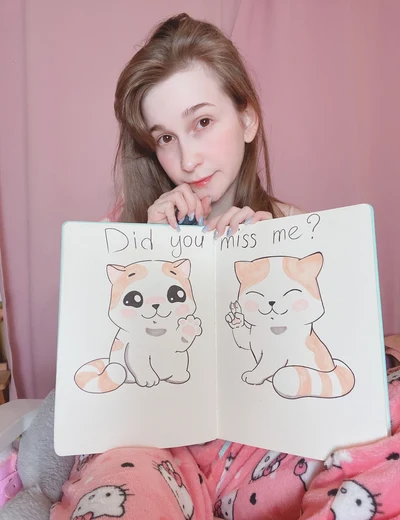 Did you miss me?